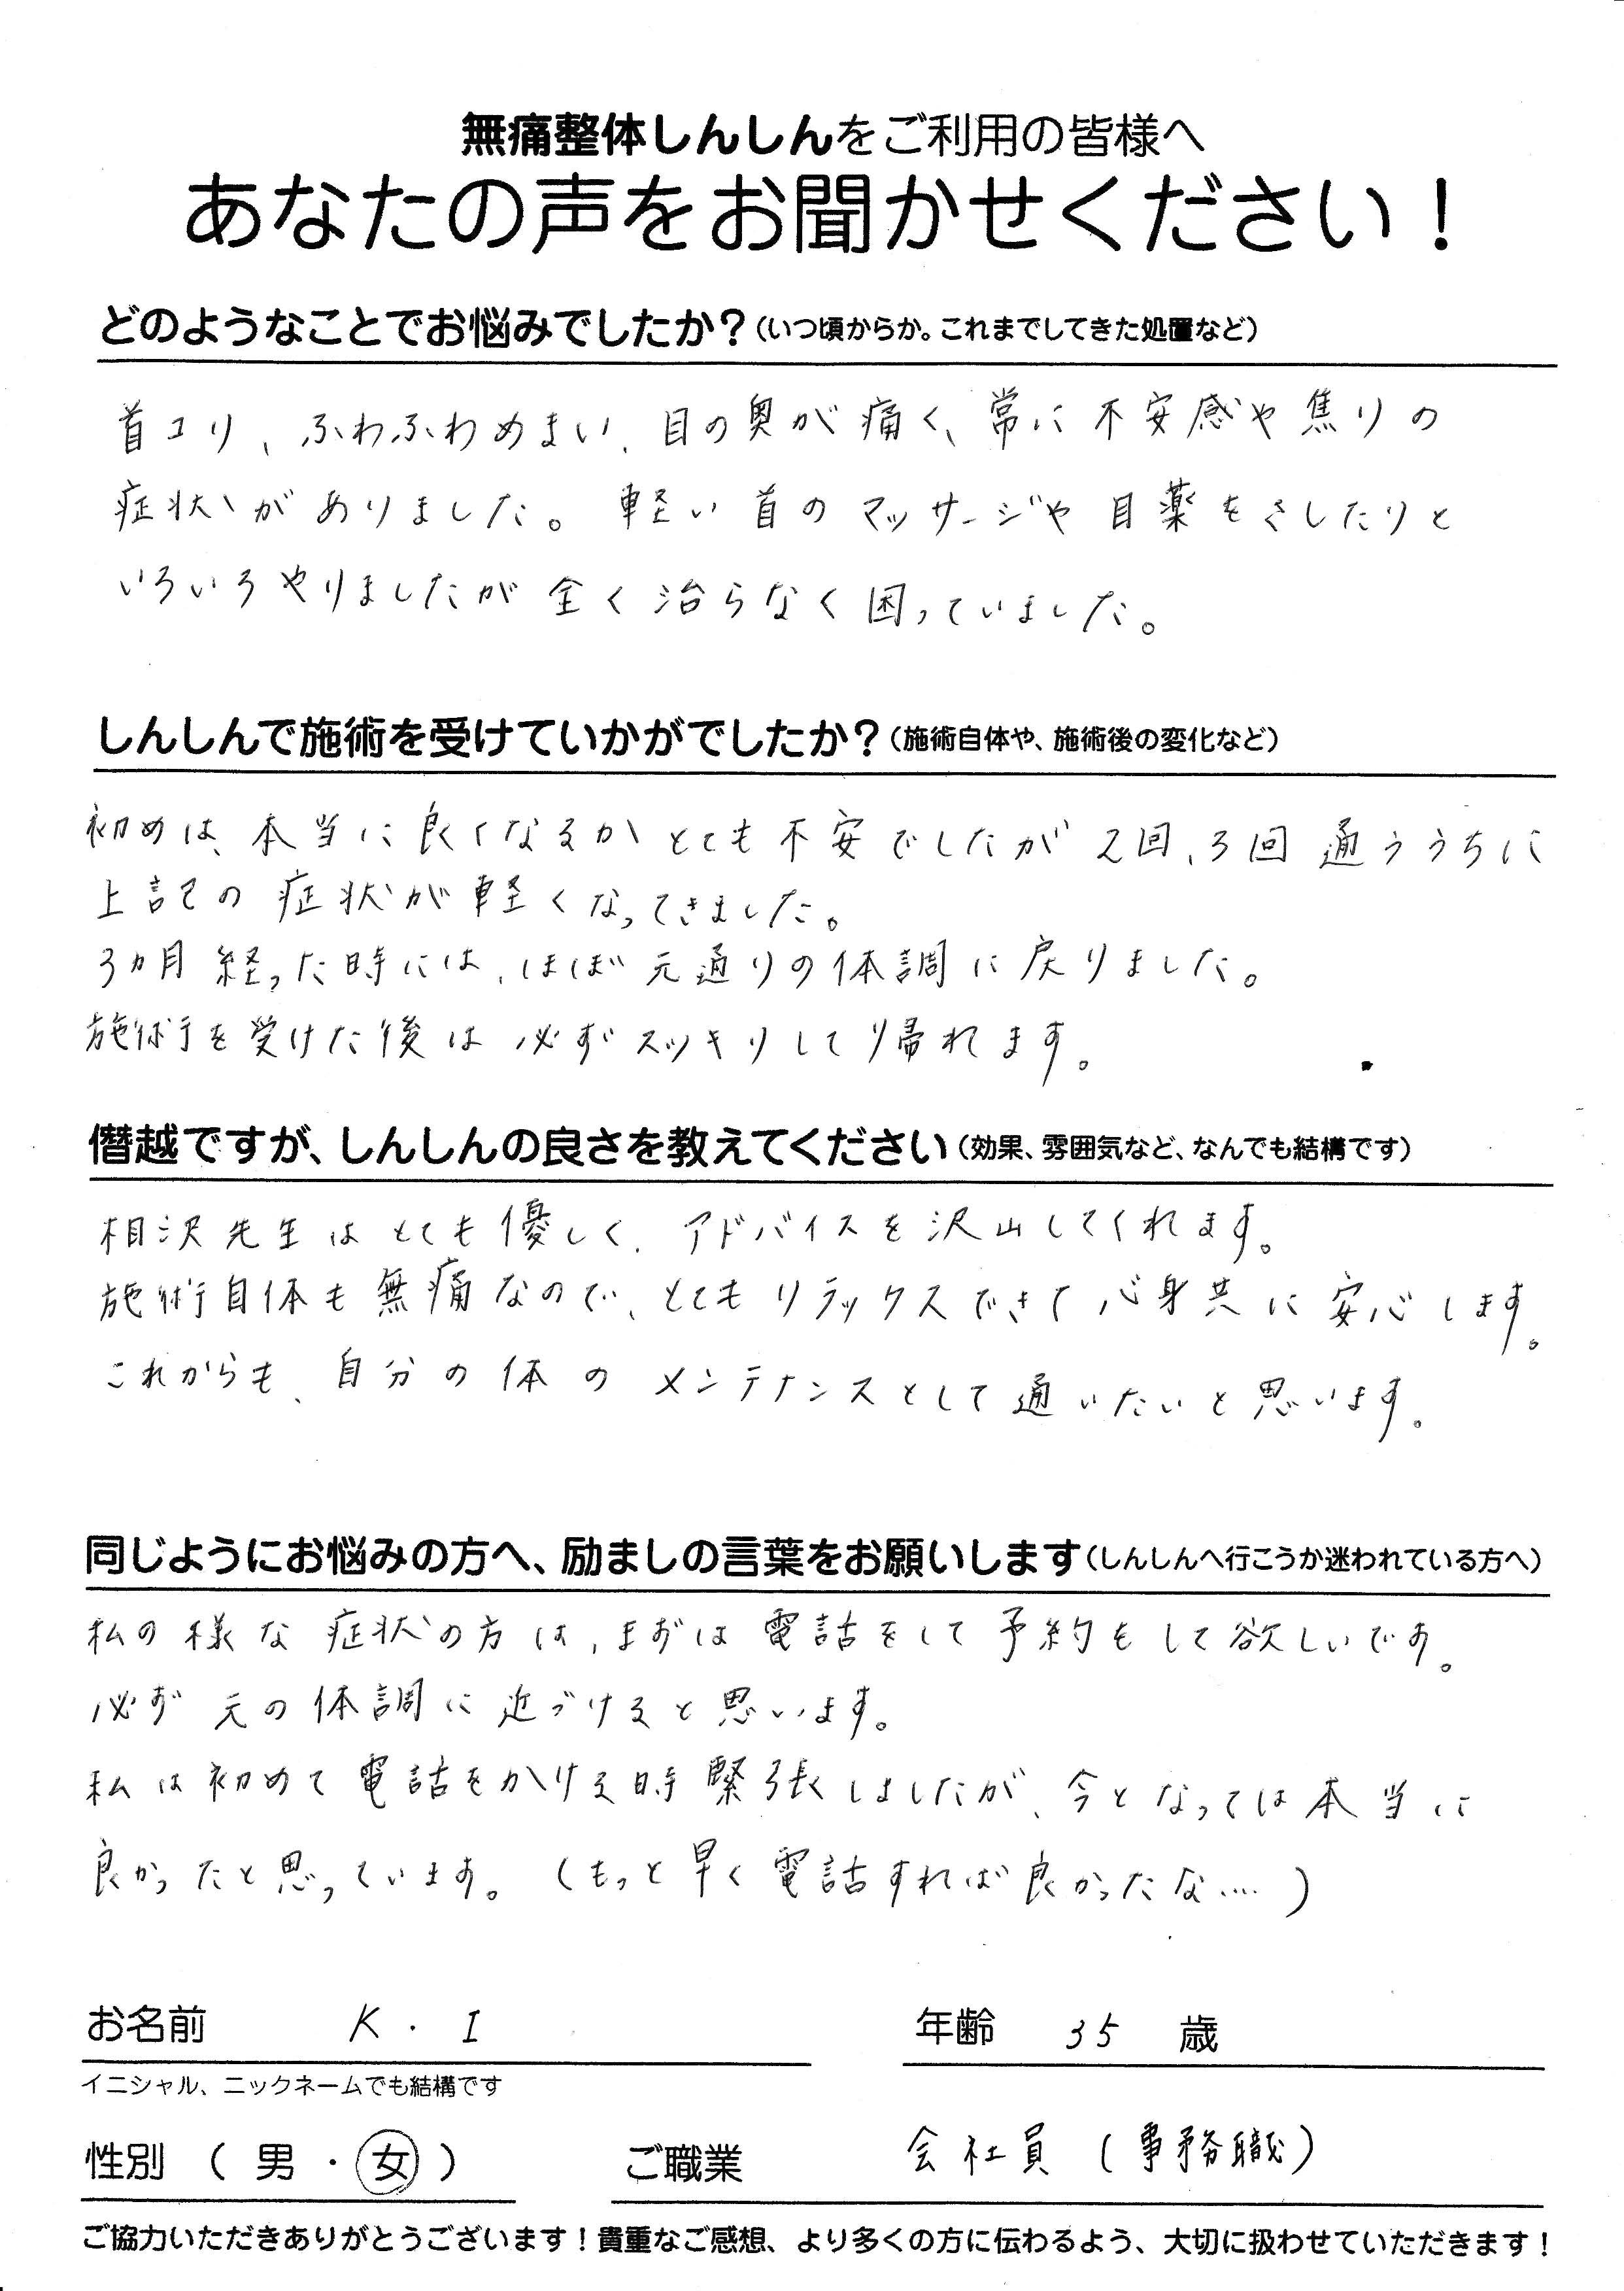 無痛整体しんしんをご利用の皆様へ
あなたの声をお聞かせください！
どのようなことでお悩みでしたか？（いつ頃からか。これまでしてきた処置など）
首コリ、ふわふわめまい、目の奥が痛く、常に不安感や焦りの
症状がありました。軽い首のマッサージや目薬をさしたりと
いろいろやりましたが全く治らなく困っていました。
しんしんで施術を受けていかがでしたか？（施術自体や、施術後の変化など）
初めは、本当に良くなるかとても不安でしたが2回、3回通ううちに
上記の症状が軽くなってきました。
3ヵ月経った時には、ほぼ元通りの体調に戻りました。
施術を受けた後は必ずスッキリして帰れます。
僭越ですが、しんしんの良さを教えてください（効果、雰囲気など、なんでも結構です）
相沢先生はとても優しく、アドバイスを沢山してくれます。
施術自体も無痛なので、とてもリラックスできて心身共に安心します。
これからも、自分の体のメンテナンスとして通いたいと思います。
同じようにお悩みの方へ、励ましの言葉をお願いします（しんしんへ行こうか迷われている方へ）
私の様な症状の方は、まずは電話をして予約をして欲しいです。
必ず元の体調に近づけると思います。
私は初めて電話をかける時緊張しましたが、今となっては本当に
良かったと思っています。（もっと早く電話すれば良かったな….）
お名前 K・I 年齢 35 歳
イニシャル、ニックネームでも結構です
性別（男・女） ご職業 会社員（事務職）
ご協力いただきありがとうございます！貴重なご感想、より多くの方に伝わるよう、大切に扱わせていただきます！